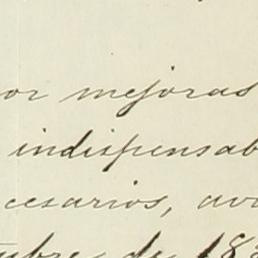 or mejoras
indispensab
cesarios, av
tubre de 18